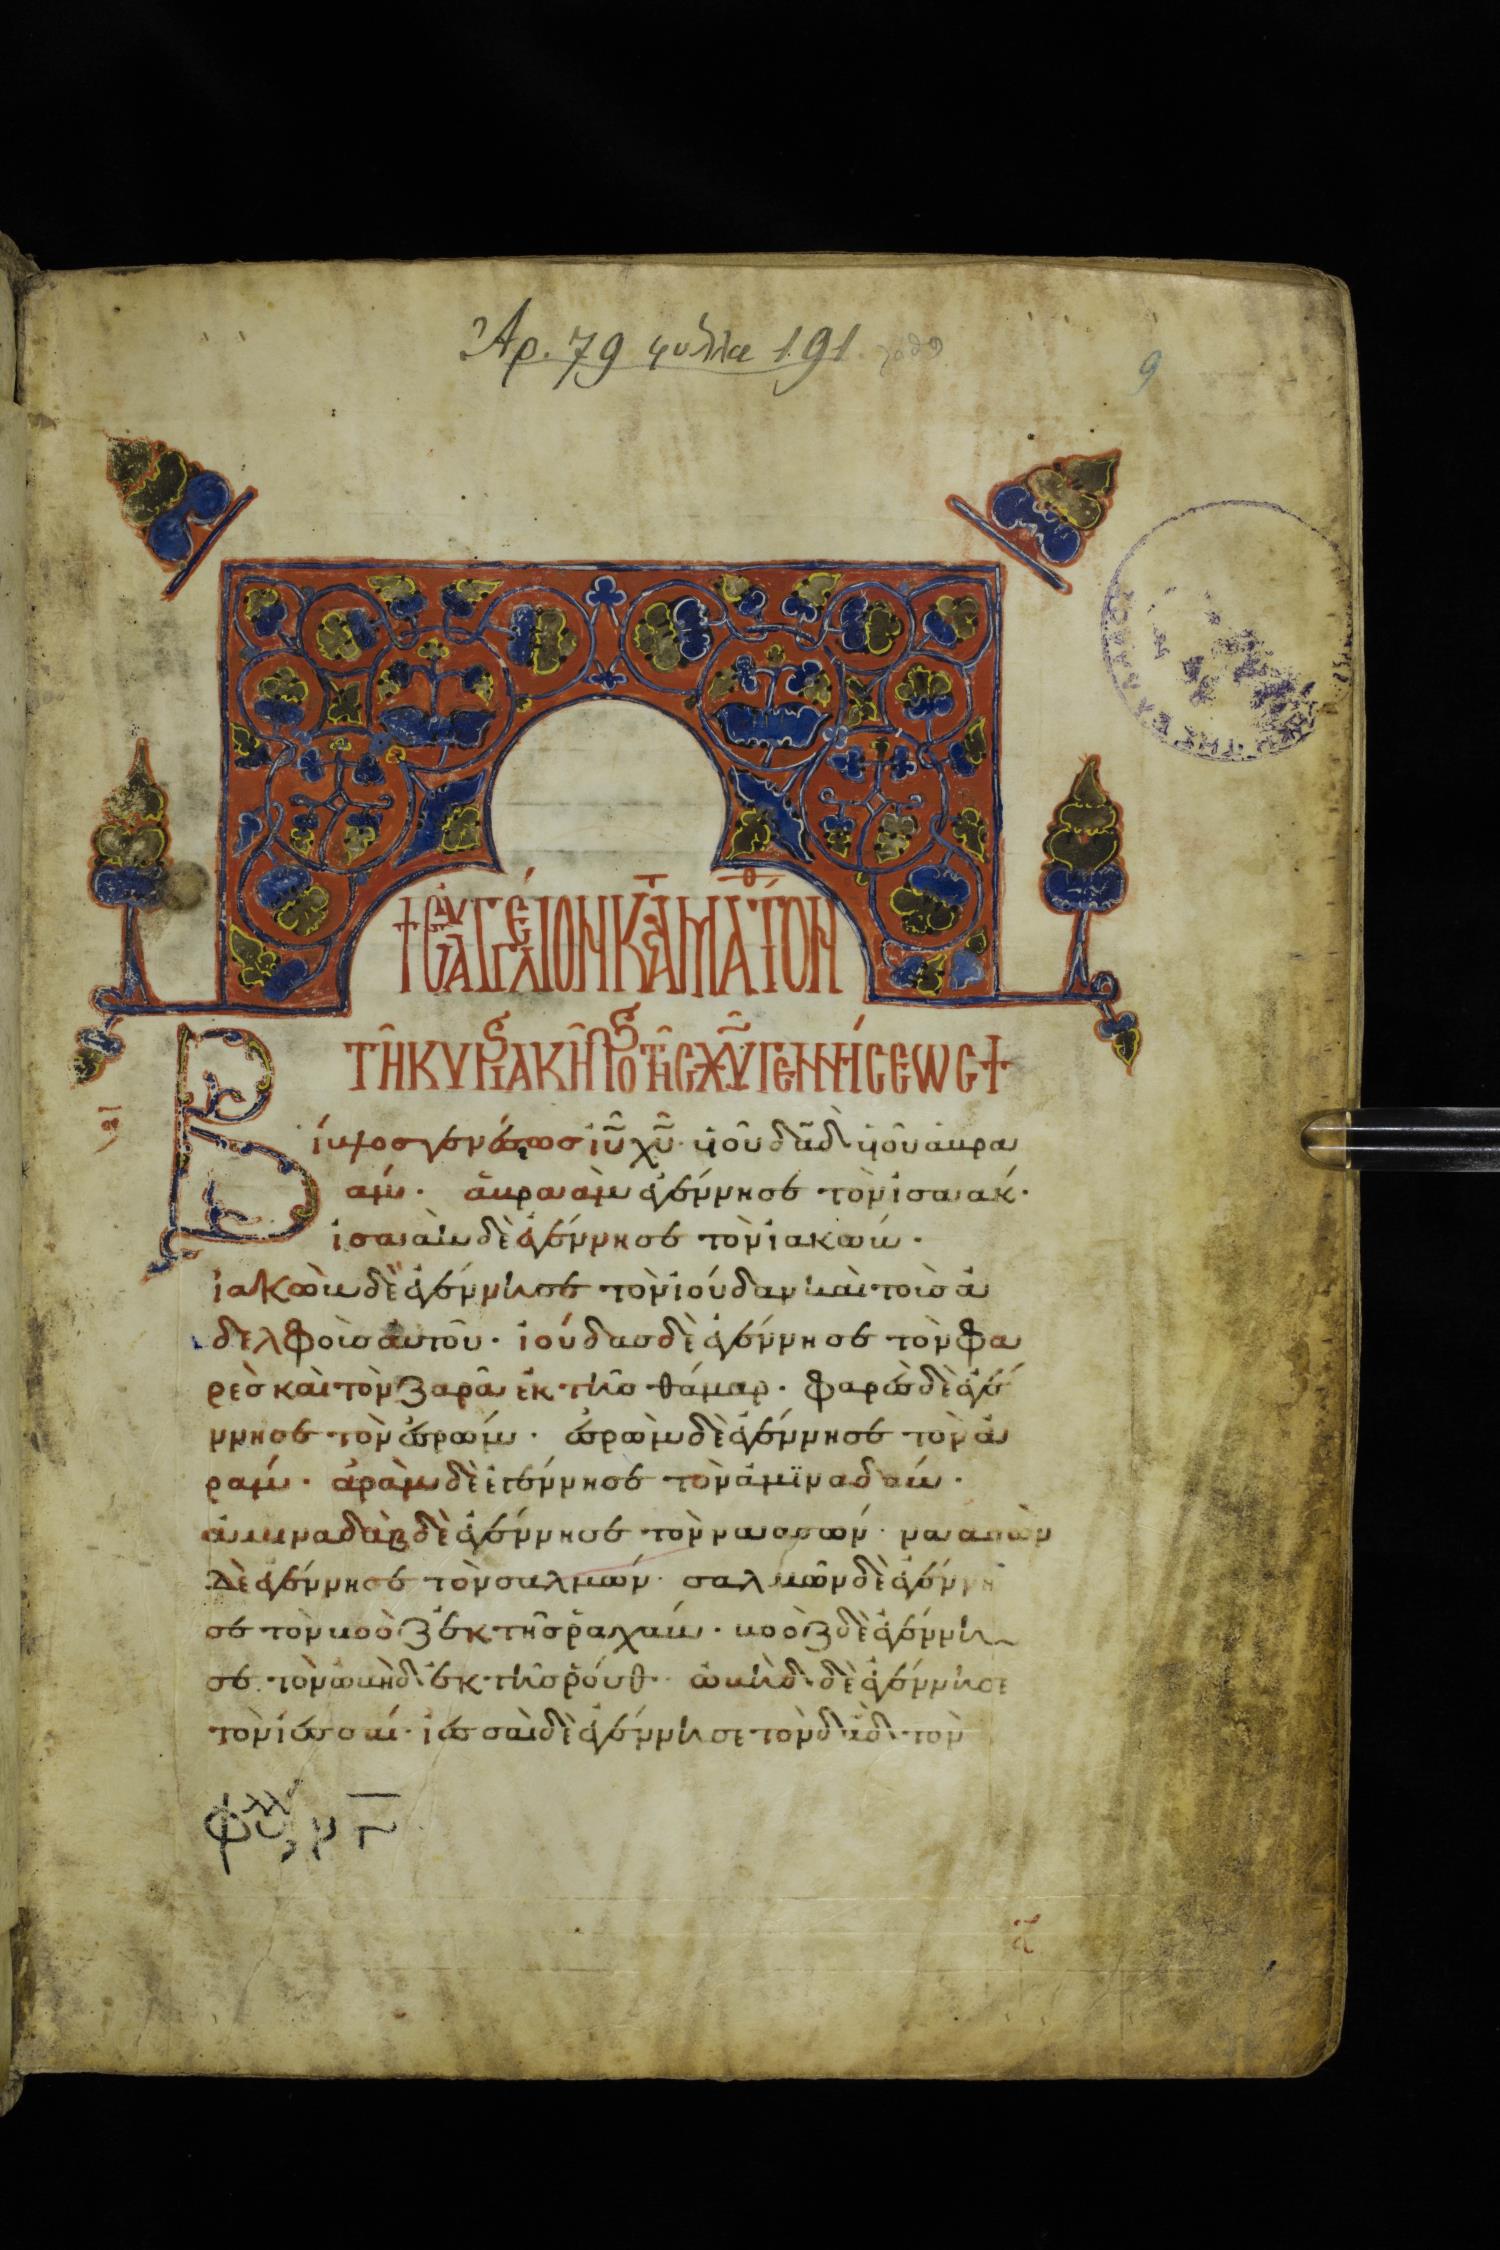 Ἀρ. 79 φύλλα 191
9
+ ΕΥΑΓΓΕΛΙΟΝ ΚΑΤΑ ΜΑΤΘΑΙΟΝ
ΤΗ ΚΥΡΙΑΚΗ ΠΡΟ ΤΗΣ ΧΥ ΓΕΝΝΗΣΕΩΣ +
Βίβλος γενέσεως ἰῦ χῦ· ὑοῦ δᾶδ ὑοῦ ἀβρα
άμ· ἀβραὰμ ἐγέννησε τὸν ἰσαάκ·
ἰσαὰκ δὲ ἐγέννησε τὸν ἰακώβ·
ἰακὼβ δὲ ἐγέννησε τὸν ἰούδαν καὶ τοὺσ ἀ
δελφοὺσ αὐτοῦ· ἰούδασ δὲ ἐγέννησε τὸν φα
ρὲσ καὶ τὸν ζαρᾶ ἐκ τῆσ θάμαρ· φαρὲσ δὲ ἐγέ
ννησε τὸν ἐσρώμ· ἐσρὼμ δὲ ἐγέννησε τὸν ἀ
ράμ· ἀρὰμ δὲ ἐγέννησε τὸν ἀμϊναδάβ·
ἀμιναδὰβ δὲ ἐγέννησε τὸν ναασσών· ναασσὼν
δὲ ἐγέννησε τὸν σαλμών· σαλμῶν δὲ ἐγέννη
σε τὸν βοὸζ ἐκ τῆσ ῥαχάβ· βοὸζ δὲ ἐγέννη
σε τὸν ὠβὴδ ἐκ τῆσ ῥούθ· ὠβὴδ δὲ ἐγέννησε
τὸν ἰεσσαί· ἰεσσαὶ δὲ ἐγέννησε τὸν δᾶδ τὸν